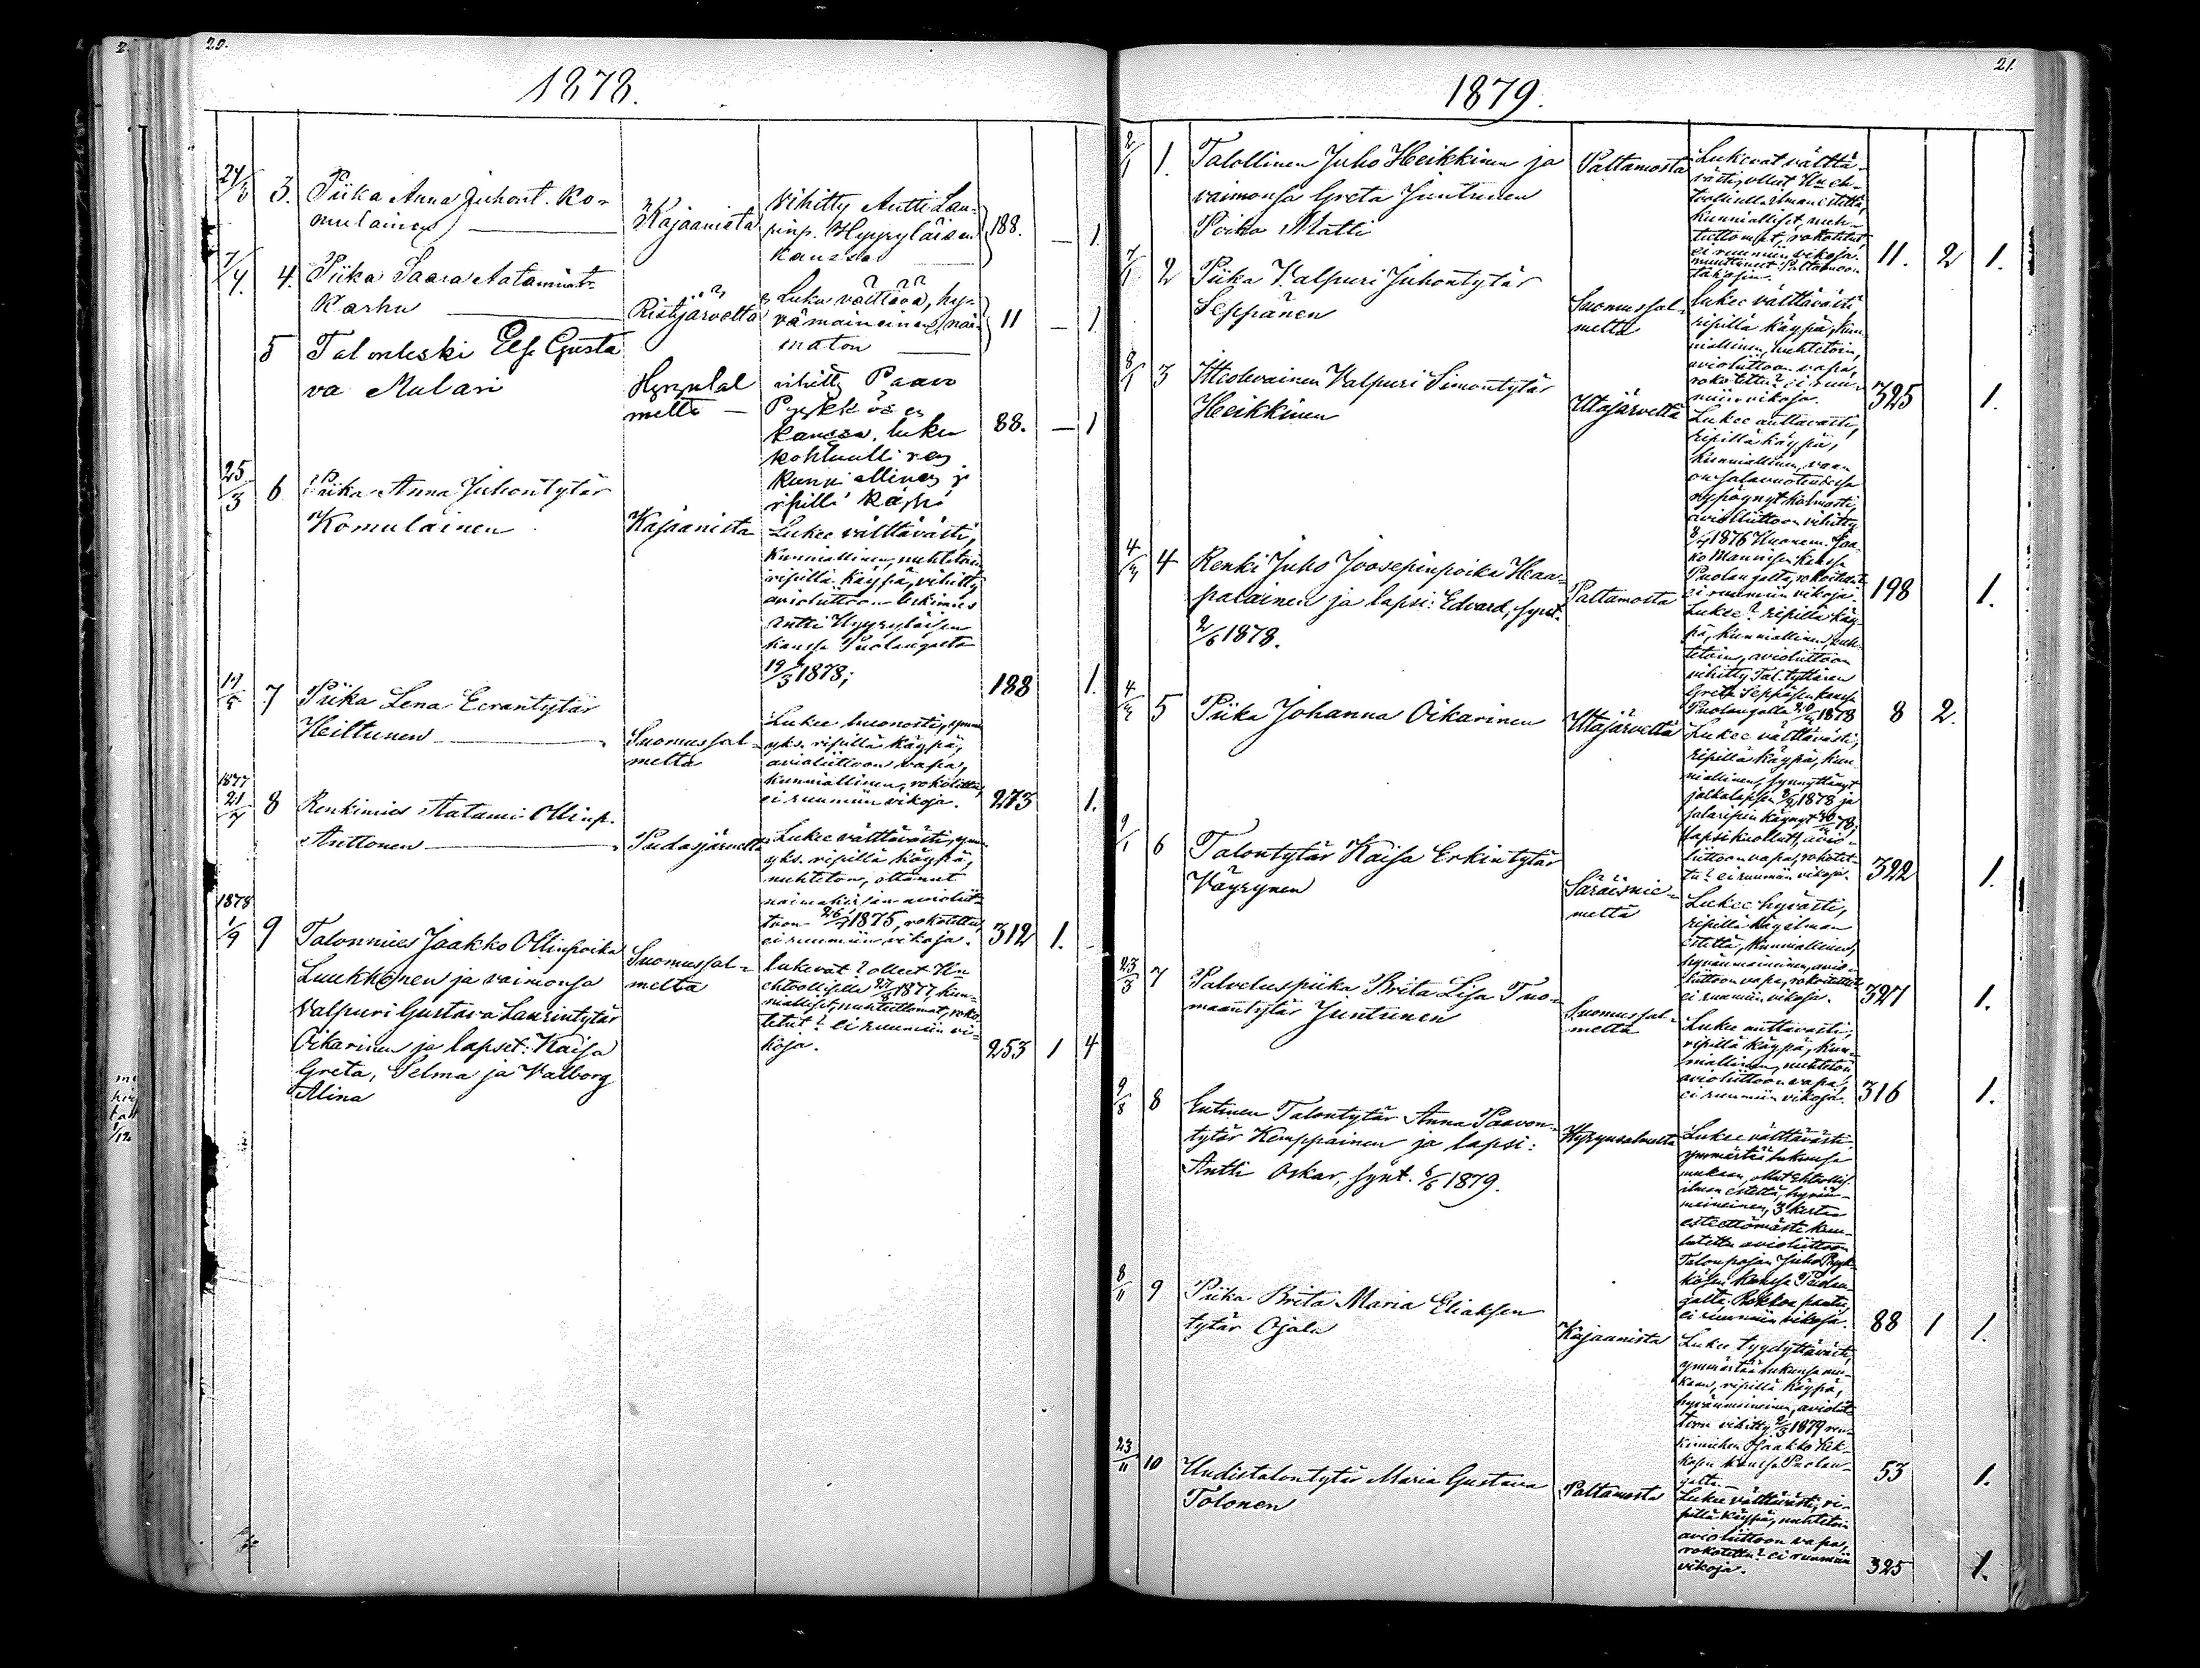 20.
1878.
24/3 3. Piika Anna Juhont. Ko-
mulainen Kajaanista
Vihitty Antti Lau-
rinp. Hyyryläisen
kanssa 188. — 1
7/4. 4. Piika Saara Aatamint.
Karhu Ristijärveltä
Luku välttävä, hy-
vämaineinen, nai-
maton 11 — 1
5 Talonleski Els. Gusta
va Mulari Hyrynsal
melta —
vihitty Paavo
Pyykkösen
kanssa. luku
kohtuullinen
kunniallinen ja
ripillä käypä
88. — 1
25/3 6 Piika Anna Juhontytär
Komulainen Kajaanista
Lukee välttävästi,
kunniallinen, nuhteton
ripillä käypä, vihitty
avioliittoon leskimies
Antti Hyyryläisen
kanssa Puolangalta
19/3 1878; 188 1.
19/5 7 Piika Lena Eerantytär
Heiltunen Suomussal-
melta
Lukee huonosti, ymm
yks. ripillä käypä,
avioliittoon vapa,
kunniallinen, rokotettu,
ei ruumiin vikoja. 273 1.
1877
21/7 8 Renkimies Aatami Ollinp.
Anttonen Pudasjärvelta
Lukee välttävästi, ymm
yks. ripillä käypä,
nuhteton, ottanut
naimakirjan avioliit-
toon 26/7 1875, rokotettu
ei ruumiin vikoja. 312 1.
1878
1/9 9 Talonmies Jaakko Ollinpoika
Luukkonen ja vaimonsa
Valpuri Gustava Laurintytär
Oikarinen ja lapset: Kaisa
Greta, Selma ja Valborg
Alina
Suomussal-
melta
lukevat? olleet Hu
ehtoollisella 1877, kun-
nialliset, nuhteettomat, roko
tetut? ei ruumiin vi-
koja. 253 1 4
21.
1879.
2/1 1. Talollinen Juho Heikkinen ja
vaimonsa Greta Juntunen
Poika Matti
Paltamosta
Lukevat välttä-
västi, ollut H. eh-
toollisella ilman estettä,
kunnialliset, nuh-
tettomat, rokotetut,
ei ruumiin vikoja.
muuttanut Paltamoon
takasin. 11. 2 1.
7/1 2 Piika Valpuri Juhontytär
Seppänen Suomussal-
melta
Lukee välttävästi
ripillä käypä, kun
niallinen, nuhtetoin,
avioliittoon vapa,
rokotettu? ei ruu-
miin vikoja. 325 1.
8/1 3 Itteolevainen Valpuri Simontytär
Heikkinen Utajärveltä
Lukee auttavasti,
ripillä käypä,
kunniallinen, vaan
on salavuoteudessa
avioliittoon vihitty
1876 Huonem. Jaa-
ko Mannisen kanssa
Puolangalta, rokotettu
ei ruumiin vikoja. 198 1.
4/4 Renki Juho Joosepinpoika Haa-
palainen ja lapsi: Edvard, synt.
2/6 1878.
Paltamosta
Lukee? ripillä käy-
pä, kunniallinen, nuh-
tetoin, avioliittoon
vihitty Tal. tyttären
Greta Seppäsen kanssa
Puolangalla 1878 8 2.
5 Piika Johanna Oikarinen Utajärveltä
Lukee välttävästi,
ripillä käypä, kun
niallinen, synnyttänyt
jalkalapsen 1878 ja
salaripin käynyt
(lapsi kuollut), avio-
liittoon vapa, rokotet-
tu? ei ruumiin vikoja. 322 1.
9/1 6 Talontytär Kaisa Erkintytär
Väyrynen Säräisnie-
meltä
Lukee hyvästi,
ripillä käy ilman
estettä, kunniallinen,
hyvänmaininen, avio-
liittoon vapa, rokotettu
ei ruumiin vikoja. 327 1.
23/3 7 Palveluspiika Brita Lisa Tuo-
maantytär Juntunen Suomussal-
melta
Lukee auttavasti,
ripillä käypä, kun-
niallinen, nuhtetoin
avioliittoon vapa,
ei ruumiin vikoja. 316 1.
9/8 8 Entinen Talontytär Anna Paavon-
tytär Kemppainen ja lapsi:
Antti Oskar, synt. 6/6 1879.
Hyrynsalmelta
Lukee välttävästi
ymmärtää lukunsa
mukaan, ollut ehtoollis.
ilman estettä, hyvän-
maineinen, 3 kertaa
esteettömästi kuu-
lutettu avioliittoon
Talonpojan Juho Pyyk-
kösen kanssa Puolan-
galta. Rokkoa pantu,
ei ruumiin vikoja. 88 1 1.
8/11 9 Piika Brita Maria Eliaksen
tytär Ojala Kajaanista
Lukee tyydyttävästi
ymmärtää lukunsa mu-
kaan, ripillä käypä,
hyvänmaineinen, avioliit-
toon vihitty 2/3 1879 ren-
kimiehen Jaakko Kek-
kosen kanssa Puolan-
galta. 53 1.
23/11 10 Uudistalontytär Maria Gustava
Tolonen Paltamosta
Lukee välttävästi, ri-
pillä käypä, nuhtetoin
avioliittoon vapa,
rokotettu? ei ruumiin
vikoja. 325 1.